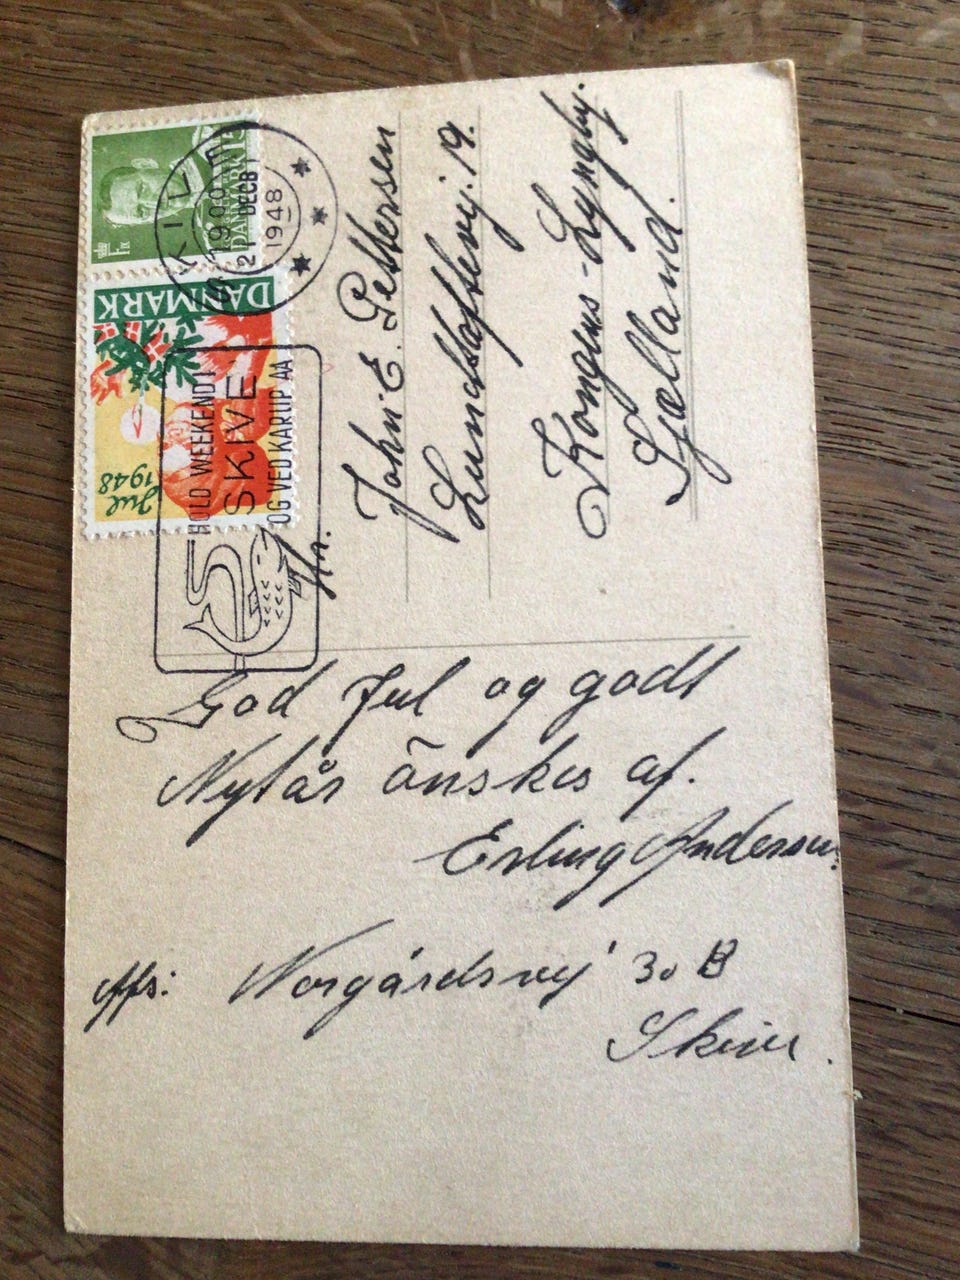 DANMARK
DANMARK
Jul
1948
SKIVE
19.00
DECBR
1948
HOLD WEEKEND I
SKIVE
OG VED KARUP AA
Hr.
John E. Pettersen
Lundtoftevej. 19.
Kongens-Lyngby.
Sjælland.
God Jul og godt
Nytår ønskes af.
Erling Andersen.
Afs: Norgårdsvej 30 B
Skive.